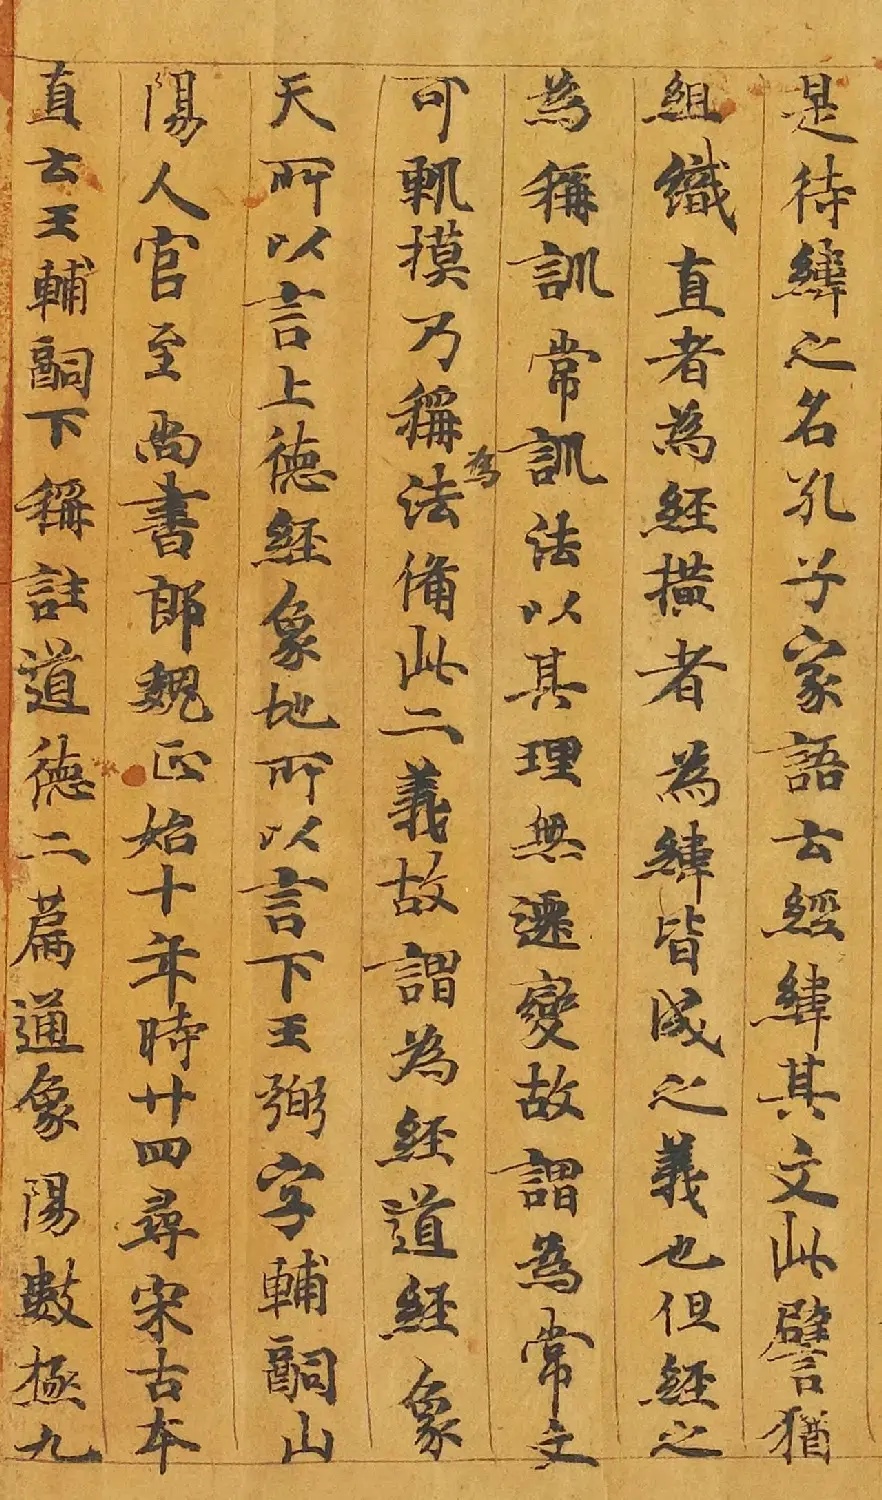 是待緯之名孔子家語云經緯其文此譬猶
組織直者為經橫者為緯皆成之義也但經之
為稱訓常訓法以其理無遷變故謂為常文
可軌摸乃稱為法備此二義故謂為經道經象
天所以言上德經象地所以言下王弼字輔嗣山
陽人官至尚書郎魏正始十年時廿四尋宋古本
直云王輔嗣下稱註道德二篇通象陽數極九